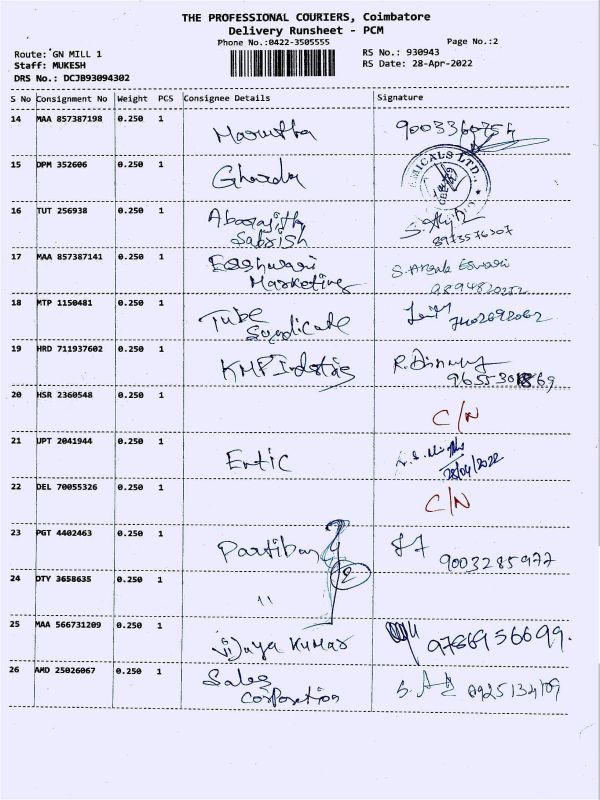 THE PROFESSIONAL COURIERS, Coimbatore
Delivery Runsheet - PCM
Phone No.:0422-3505555
Page No.:2
Route: GN MILL 1
RS No.: 930943
Staff: MUKESH
RS Date: 28-Apr-2022
DRS No.: DCJB93094302
S No Consignment No Weight PCS Consignee Details Signature
14 MAA 857387198 0.250 1 Marutha 9003360754
15 DPM 352606 0.250 1 Gharda
MICALS LTD.
16 TUT 256938 0.250 1
Sabrish 8973576307
17 MAA 857387141 0.250 1 Eashwari S. Angala Eswari
Marketing 9894820252
18 MTP 1150481 0.250 1 Tube
Syndicate 7402692062
19 HRD 711937602 0.250 1 KMP Industries R.
20 HSR 2360548 0.250 1 C/N
21 UPT 2041944 0.250 1 Entic
28/04/2022
22 DEL 70055326 0.250 1 C/N
23 PGT 4402463 0.250 1 Partiban 9003285977
24 DTY 3658635 0.250 1 " 2
25 MAA 566731209 0.250 1 Vijaya Kumar 9786956699.
26 AMD 25026067 0.250 1 Sales
Corporation